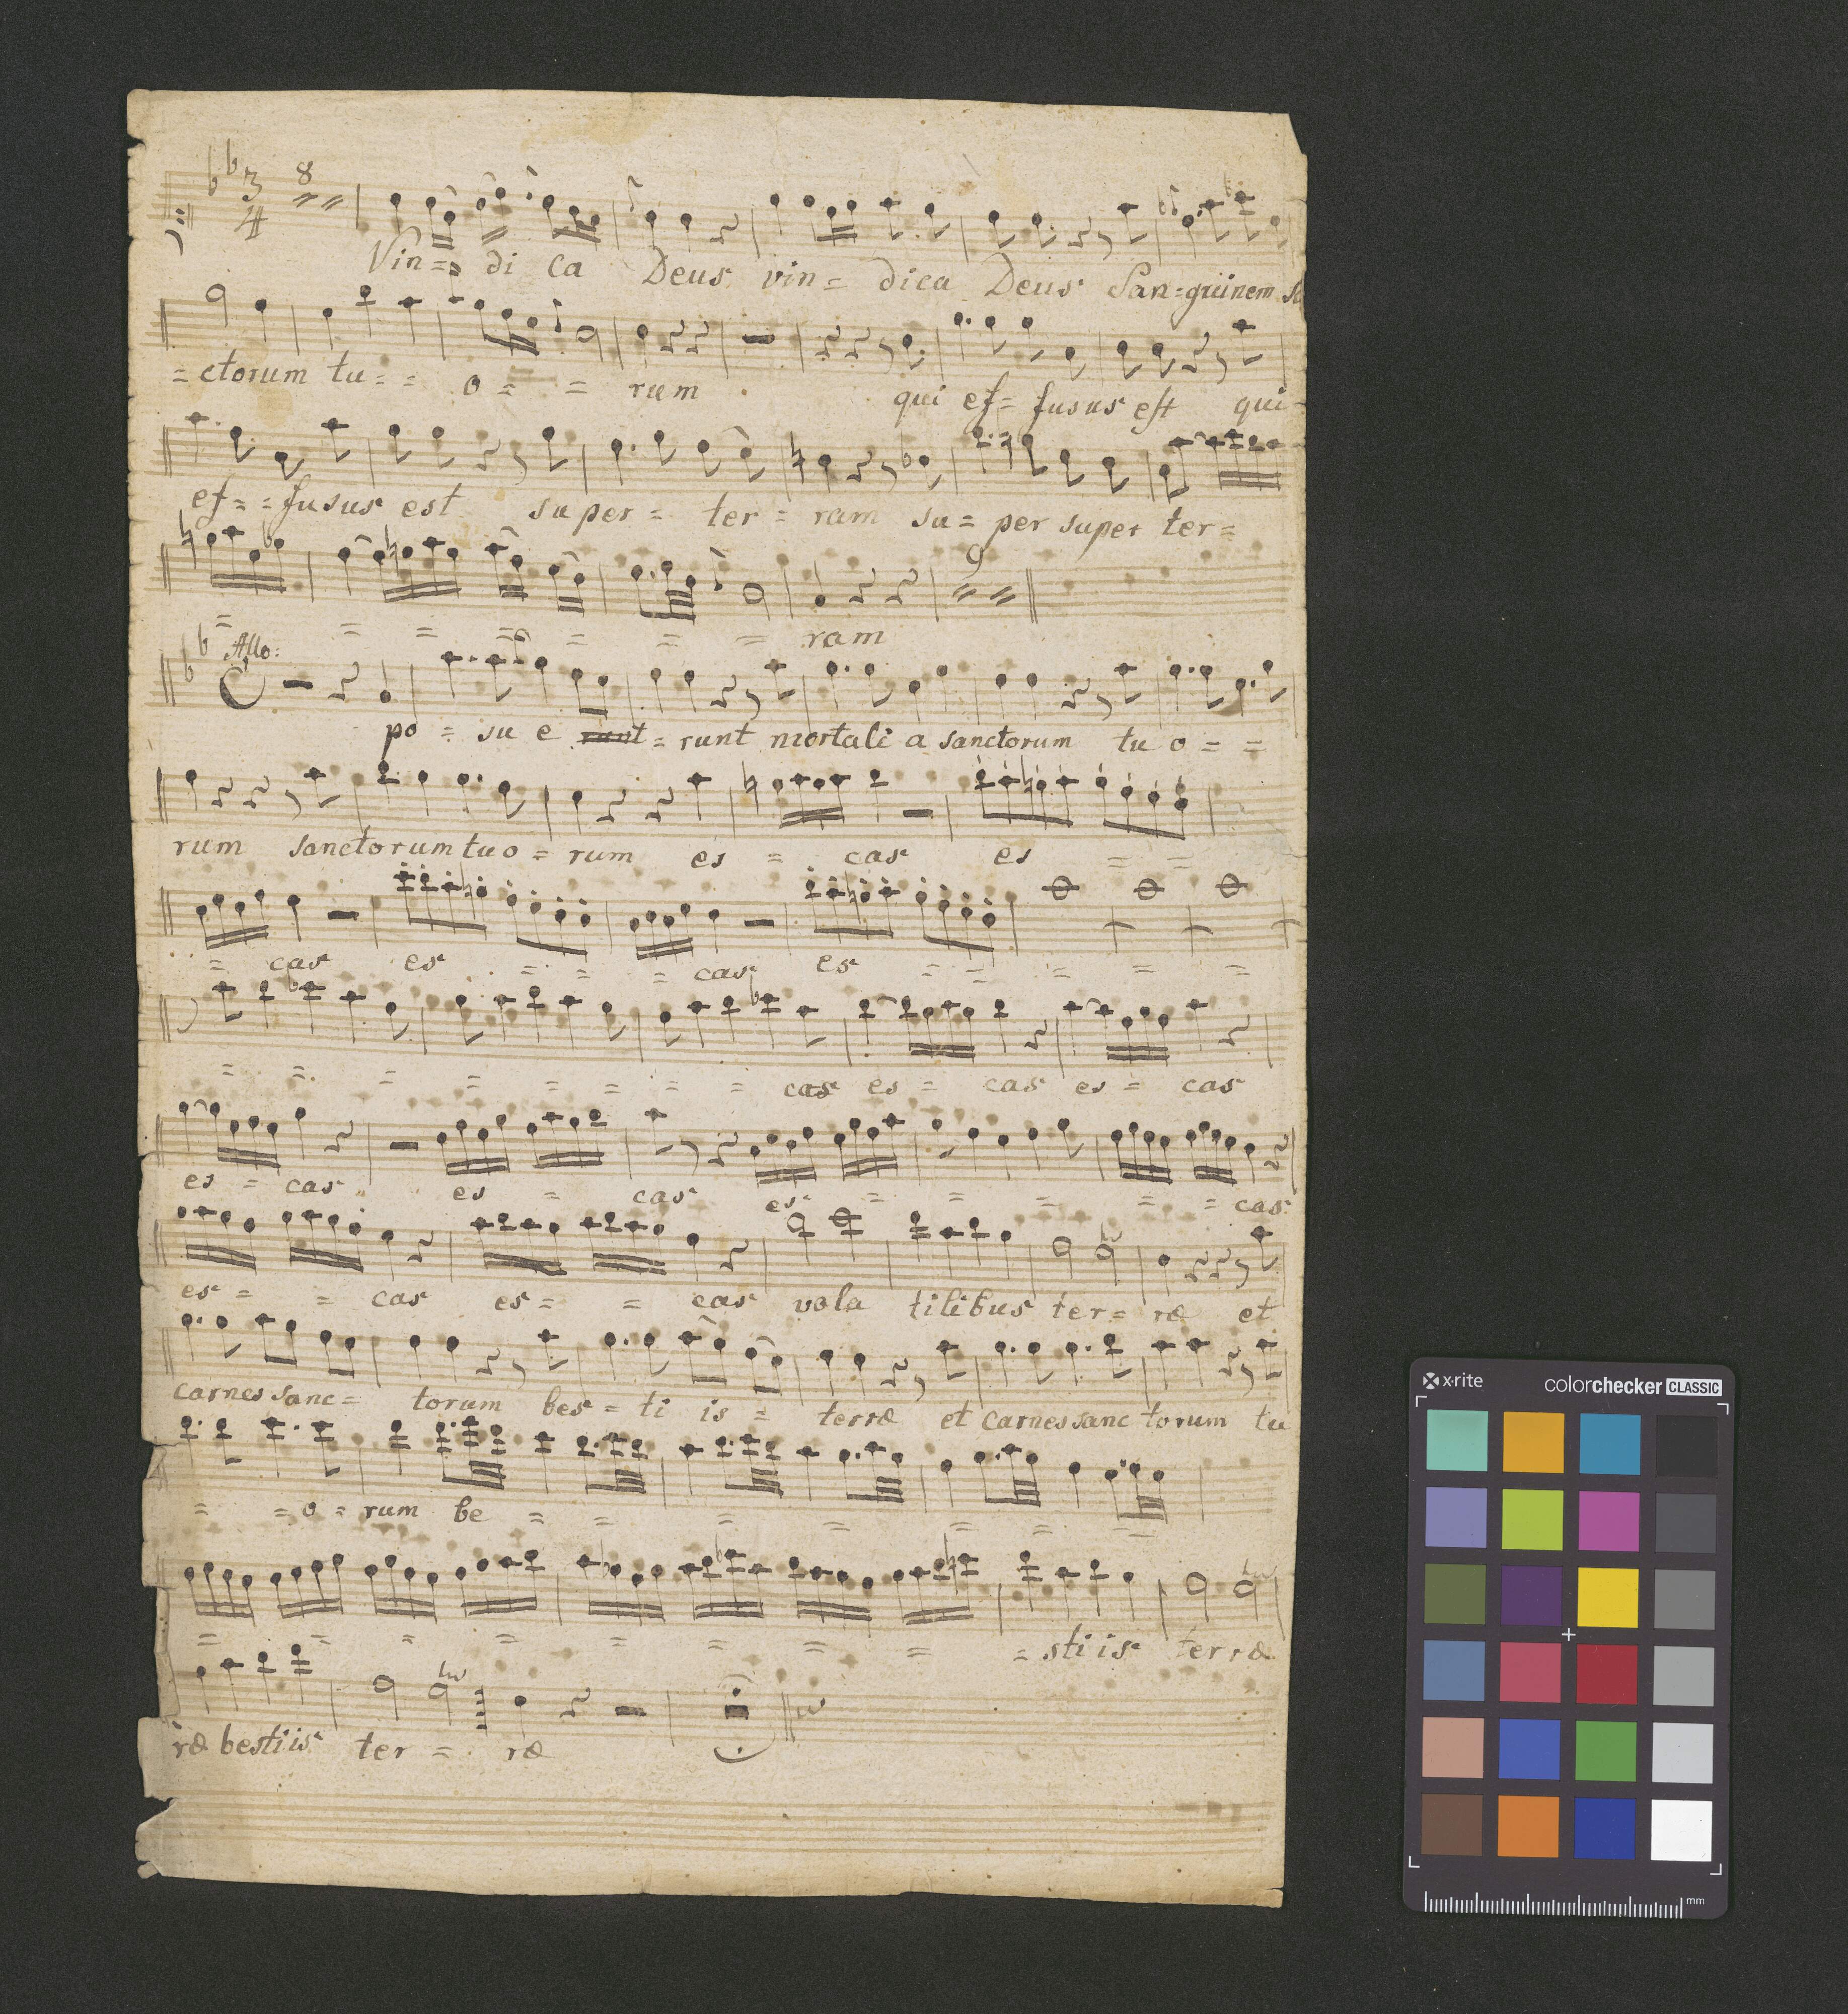 3 4 8
Vin= = di ca Deus vin= dica Deus San=guinem
=ctorum tu= = o= = rum qui ef= fusus est qui
ef= =fusus est super= ter= ram su= per super ter=
= = = = = = = ram
9
Allo:
C
po= su e runt= runt mortali a sanctorum tu o= =
rum sanctorum tuo= rum es = cas es = =
= cas es = = = cas es = = = = =
= = = = = = = = cas es = cas es = cas
es = cas es = cas es = = = = = cas
es= = cas es= = cas vola tilibus ter= ræ et
tw
carnes sanc= torum bes= ti is = terræ et carnes sanc torum tu
= =o= rum be = = = = = = =
tw
= = = = = = = = =stiis terræ
tw
ræ bestiis ter= ræ
x-rite colorchecker CLASSIC
mm